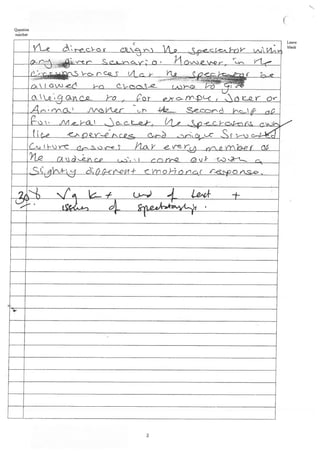 Question
number
Leave
blank
The director aligns the spectator within
any given scenario. However, in the
circumstances that the spectator be
allowed to choose who to give
alleigance to, for example, Joker or
Animal Mother in the second half of
Full Metal Jacket, the spectators own
life experiences and unique
Culture ensures that every member of
the audience will come out with a
slightly different emotional response.
30 Vg K + und of text +
issues of spectatorship.
2